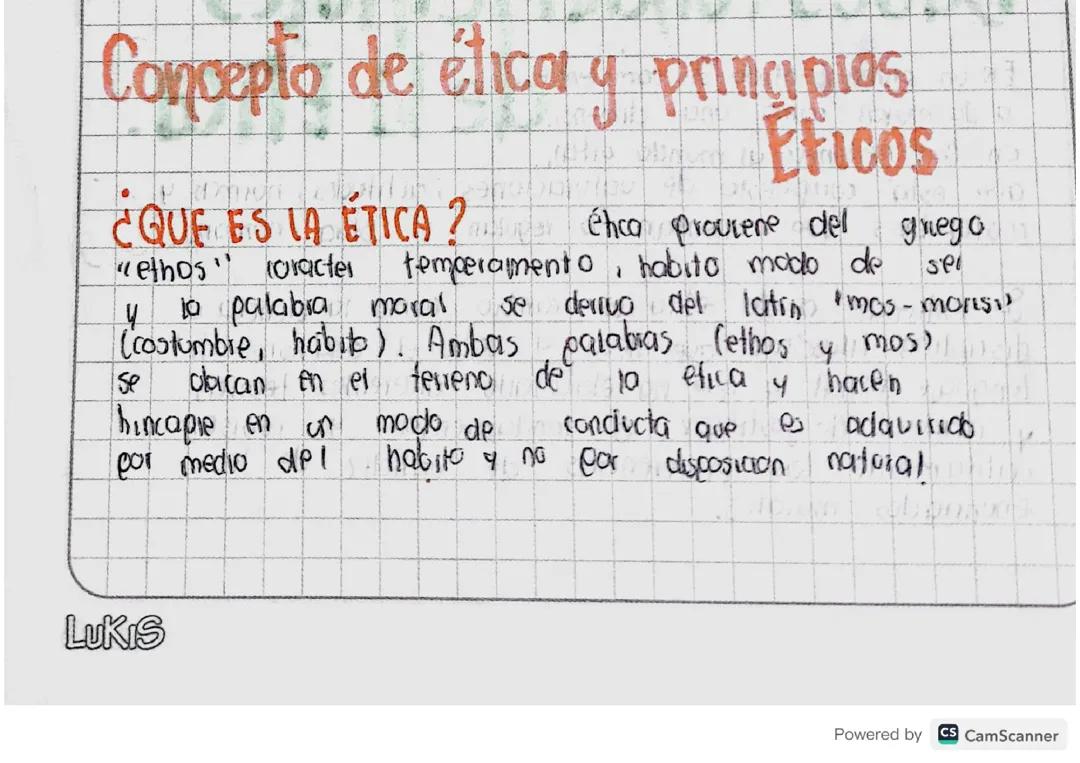 Concepto de ética y principios
Éticos
¿QUE ES LA ÉTICA? ética proviene del griego
"ethos" caracter temperamento, habito modo de ser
y la palabra moral se deriva del latin "mos-moris"
(costumbre, habito). Ambas palabras (ethos y mos)
se ubican en el terreno de la etica y hacen
hincapie en un modo de conducta que es adquirido
por medio del habito y no por disposicion natural.
LUKIS
Powered by CS CamScanner